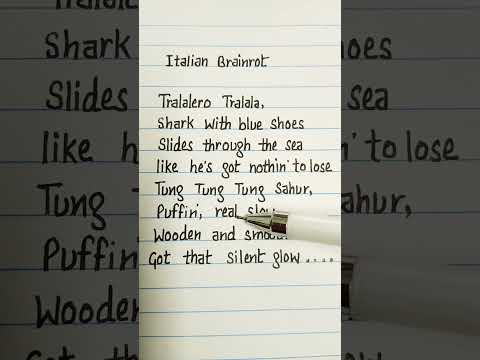 Italian Brainrot
Tralalero Tralala,
Shark with blue shoes
Slides through the sea
like he's got nothin' to lose
Tung Tung Tung Sahur,
Puffin', real slow
Wooden and
Got that silent glow....